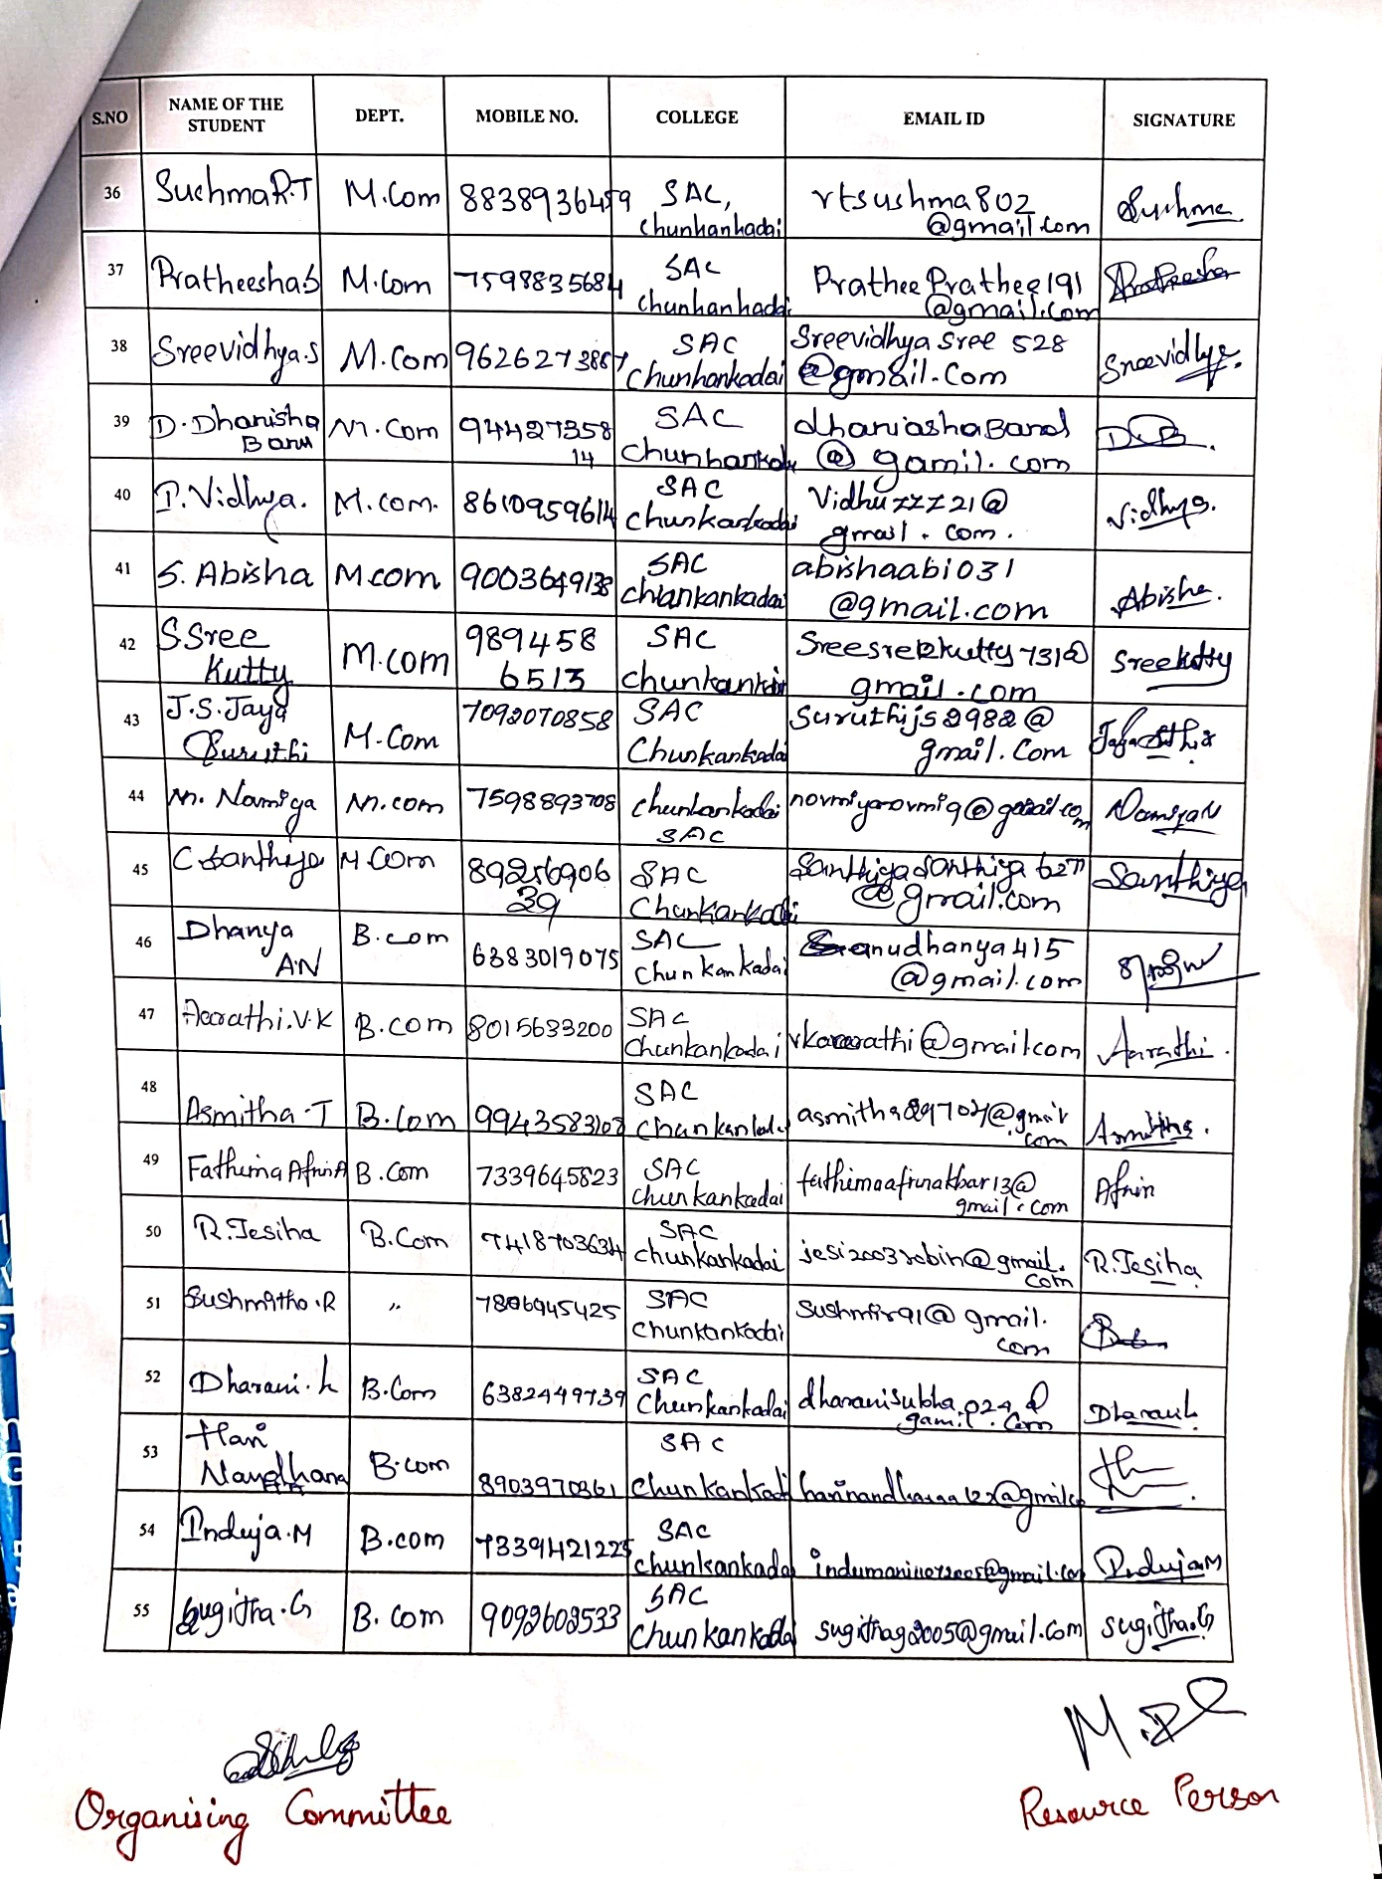 S.NO NAME OF THE STUDENT DEPT. MOBILE NO. COLLEGE EMAIL ID SIGNATURE
36 Suchma R.T M.Com 8838936459 SAC, Chunhanhadai rtsushma802@gmail.com Sushma
37 Pratheesha S M.Com 7598835684 SAC Chunhanhadai PratheePrathee191@gmail.com Pratheesha
38 Sreevidhya.S M.Com 9626273867 SAC Chunhankadai Sreevidhya Sree 528@gmail.Com Sreevidhya.
39 D. Dhanisha Banu M.Com 9442735814 SAC Chunhankadai @gamil.com DB.
40 P. Vidhya. M.com. 8610959614 SAC Chunkankadai Vidhuzzz21@gmail.com. Vidhya.
41 S. Abisha M.com 9003649138 SAC Chunkankadai abishaabi031@gmail.com Abisha.
42 S Sree Kutty M.com 9894586513 SAC Chunkankadai gmail.com Sreekutty
43 J.S. Jaya Suruthi M.Com 7092070858 SAC Chunkankadai Suruthijs2982@gmail.Com
44 M. Namiya M.com 7598893708 Chunkankadai SAC Namiya N
45 C Santhiya M Com 8925690639 SAC Chunkankadai @gmail.com Santhiya
46 Dhanya A.N B.com 6383019075 SAC Chunkankadai anudhanya415@gmail.com
47 Aarathi.V.K B.com 8015633200 SAC Chunkankadai Aarathi.
48 Asmitha.T B.Com SAC Chunkankadai Asmitha.
49 Fathima Afrin A B.Com 7339645823 SAC Chunkankadai fathimaafrinakbar13@gmail.com Afrin
50 R.Jesiha B.Com 7418703634 SAC Chunkankadai jesi2003robin@gmail.com R.Jesiha
51 Sushmitha.R " 7806945425 SAC Chunkankadai sushmir91@gmail.com
52 Dharani.L B.Com 6382449739 SAC Chunkankadai dharanisubha024@gamil.com Dharani.L
53 Hari Nandhana B.com 8903970361 SAC Chunkankadai
54 Induja.M B.com 7339421225 SAC Chunkankadai Induja.M
55 Sugitha.G B.com 9092602533 SAC Chunkankadai sugithag2005@gmail.com Sugitha.G
Organising Committee
Resource Person